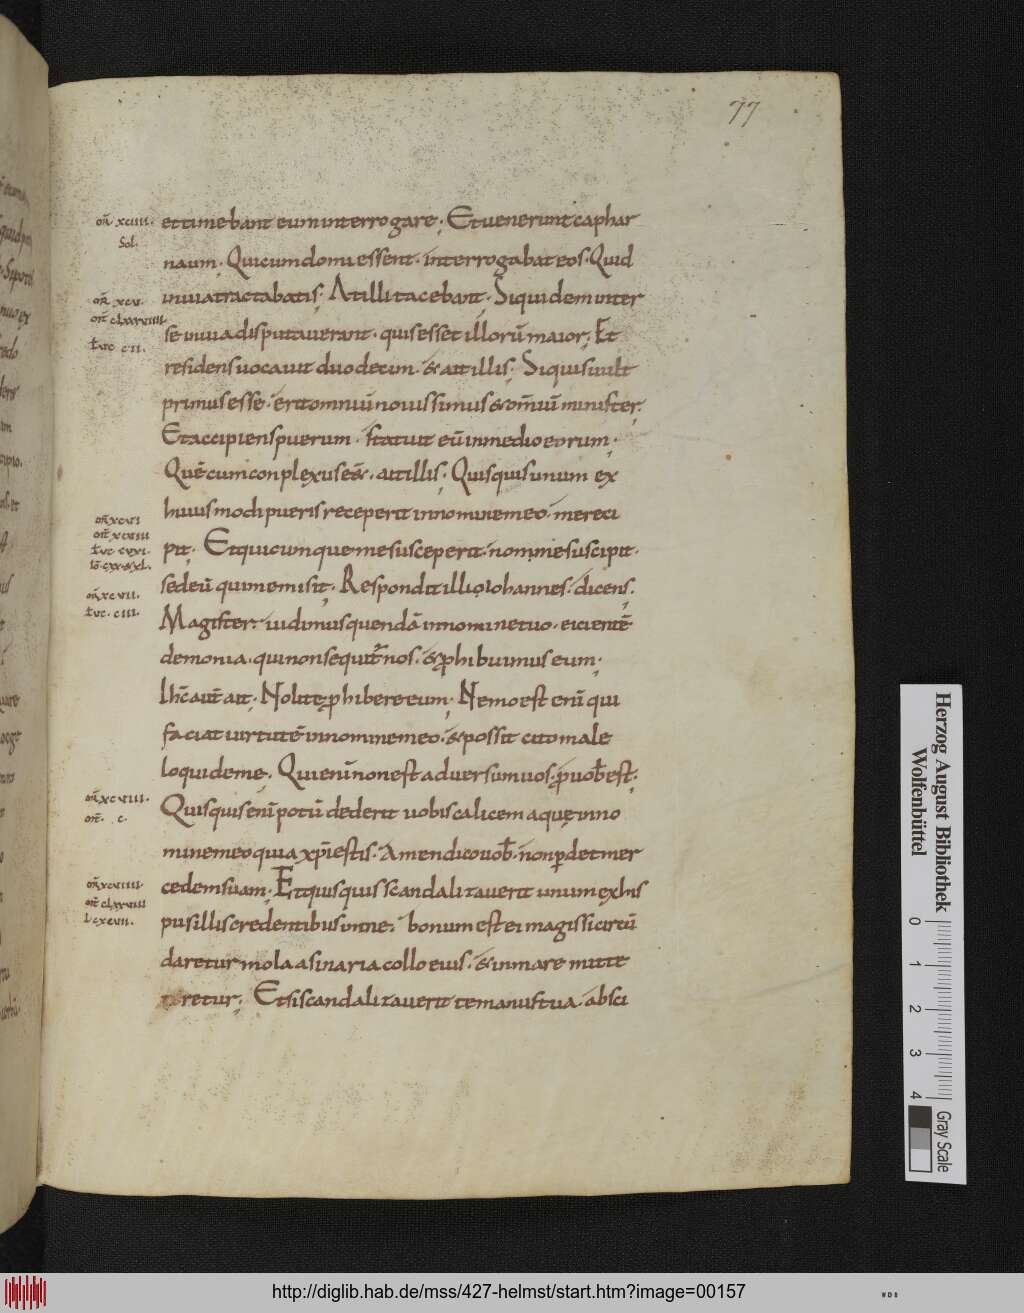 77
et timebant eum interrogare; Et uenerunt caphar
naum. Qui cum domi essent. interrogabat eos. Quid
in uia tractabatis; At illi tacebant. Siquidem inter
se in uia disputauerant. quis esset illorū maior; Et
residens uocauit duodecim. & ait illis; Siquis uult
primus esse. erit omniū nouissimus & omniū minister.
Et accipiens puerum. statuit eū in medio eorum;
Quē cum conplexus es&. ait illis; Quisquis unum ex
huius modi pueris receperit in nomine meo. me reci
pit. Et quicumque me susceperit. non me suscipit.
sed eū qui me misit; Respondit illi iohannes. dicens;
Magister. uidimus quendā in nomine tuo. eicientē
demonia. qui non sequit̄ nos. & ꝓhibuimus eum;
Ihc̄ aut̄ ait. Nolite ꝓhibere eum; Nemo est enī qui
faciat uirtutē in nomine meo. & possit cito male
loqui de me; Qui enī non est aduersum uos. ꝓ uob̄ est;
Quisquis enī potū dederit uobis calicem aquę in no
mine meo quia xp̄i estis. Amen dico uob̄. non ꝑdet mer
cedem suam; Et quisquis scandalizauerit unum ex his
pusillis credentibus in me. bonum est ei magis si circū
daretur mola asinaria collo eius. & in mare mitte
retur; Et si scandalizauerit te manus tua. absci
Herzog August Bibliothek
Wolfenbüttel
0 1 2 3 4
Gray Scale
http://diglib.hab.de/mss/427-helmst/start.htm?image=00157